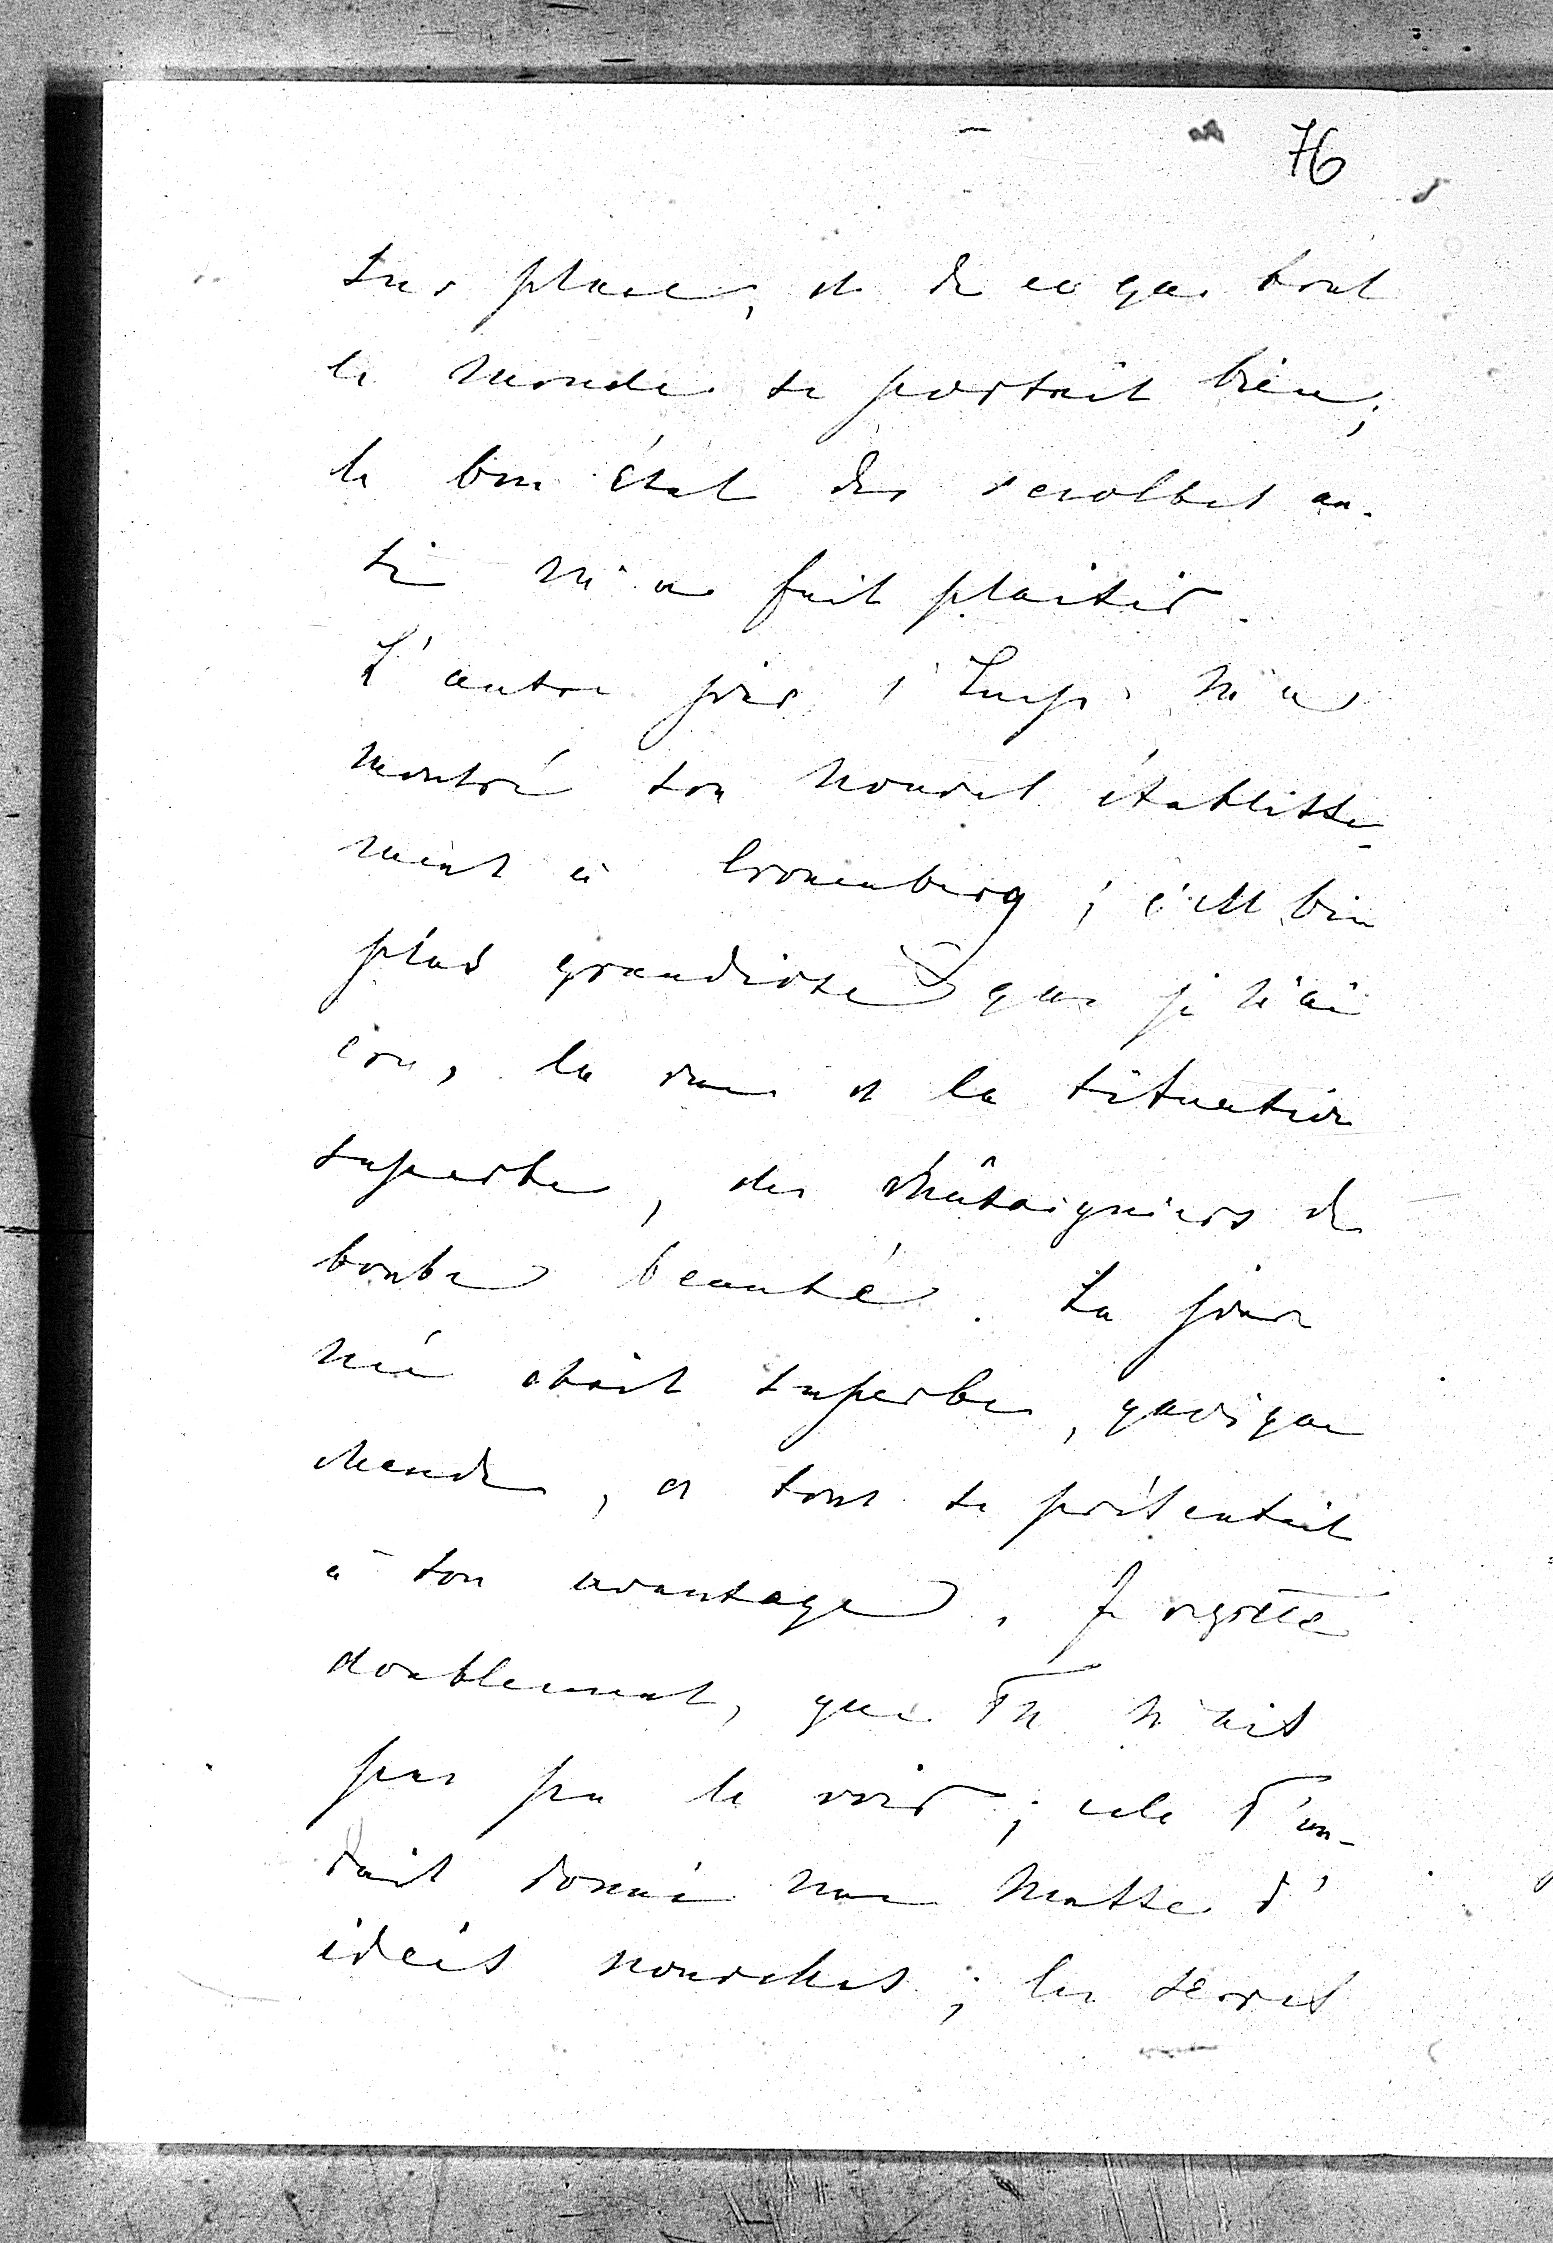 76
sur place, et de ce que tout
le monde se portait bien;
le bon état des récoltes au-
ssi m'a fait plaisir.
L'autre jour l'Imp. m'a
montré son nouvel établisse-
ment à Cronenberg; c'est bien
plus grandiose que je n'ai
cru, la vue et la situation
superbe, des châtaigniers de
toute beauté. La jour
née était superbe, quoique
chaude, et tout se présentait
à son avantage. Je regrette
doublement, que Tu n'ais
pas pu le voir; cela T'au-
rait donné une masse d'
idées nouvelles; les serres